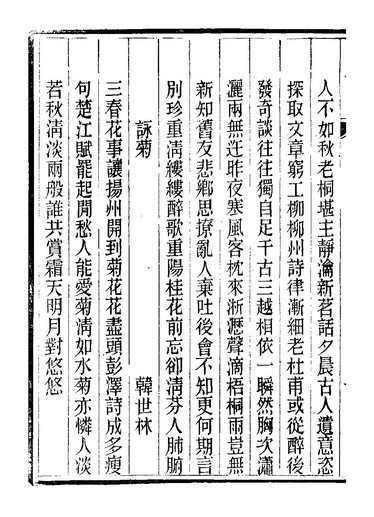 人不如秋老桐堪主靜瀹新茗話夕晨古人遺意恣
探取文章窮工柳柳州詩律漸細老杜甫或從醉後
發奇談往往獨自足千古三越相依一瞬然胸次瀟
灑兩無迕昨夜寒風客枕來淅瀝聲滴梧桐雨豈無
新知舊友悲鄉思撩亂人棄吐後會不知更何期言
別珍重淸縷縷醉歌重陽桂花前忘卻淸芬人肺腑
詠菊 韓世林
三春花事讓揚州開到菊花花盡頭彭澤詩成多瘦
句楚江賦罷起閒愁人能愛菊淸如水菊亦憐人淡
若秋淸淡兩般誰共賞霜天明月對悠悠